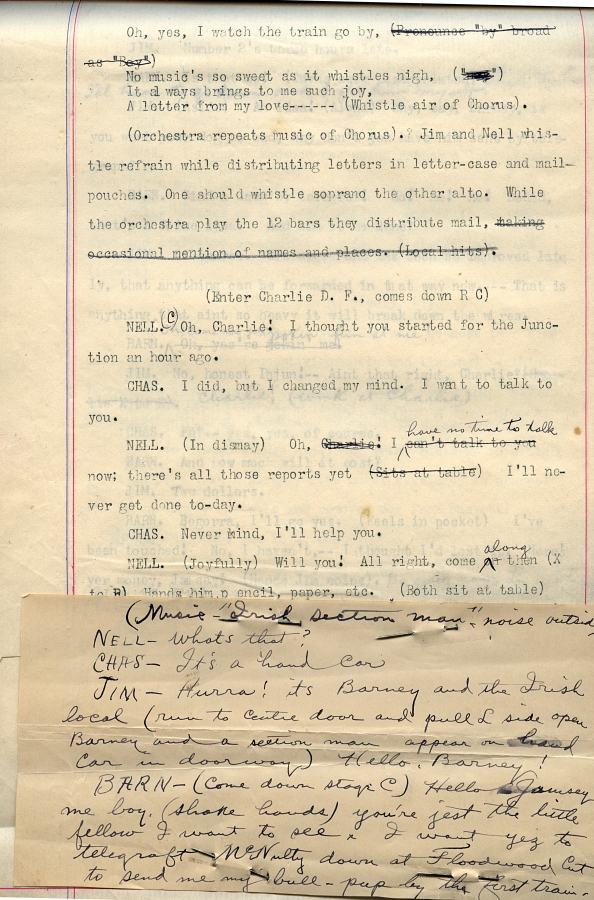 Oh, yes, I watch the train go by, (Pronounce "by" broad
as "Boy")
No music's so sweet as it whistles nigh, ("
It always brings to me such joy,
A letter from my love------ (Whistle air of Chorus).
(Orchestra repeats music of Chorus).? Jim and Nell whis-
tle refrain while distributing letters in letter-case and mail-
pouches. One should whistle soprano the other alto. While
the orchestra play the 12 bars they distribute mail, making
occasional mention of names and places. (Local hits).
(Enter Charlie D. F., comes down R C)
NELL. (C) Oh, Charlie! I thought you started for the Junc-
tion an hour ago.
CHAS. I did, but I changed my mind. I want to talk to
you.
have no time to talk
NELL. (In dismay) Oh, Charlie! I can't talk to you
now; there's all those reports yet (Sits at table) I'll ne-
ver get done to-day.
CHAS. Never mind, I'll help you.
along
NELL. (Joyfully) Will you! All right, come on then (X
to R) Hands him p encil, paper, etc. (Both sit at table)
(Music - "Irish section man" noise outside
NELL - Whats that?
CHAS - It's a hand car
JIM - Hurra! its Barney and the Irish
local (run to centre door and pull L side open
Barney and a section man appear on hand
car in doorway) Hello, Barney!
BARN - (Come down stage C) Hello Jamsey
me boy. (shake hands) you're jest the little
fellow I want to see & I want yez to
telegraft McNulty down at Floodwood Cut
to send me my bull-pup by the first train -